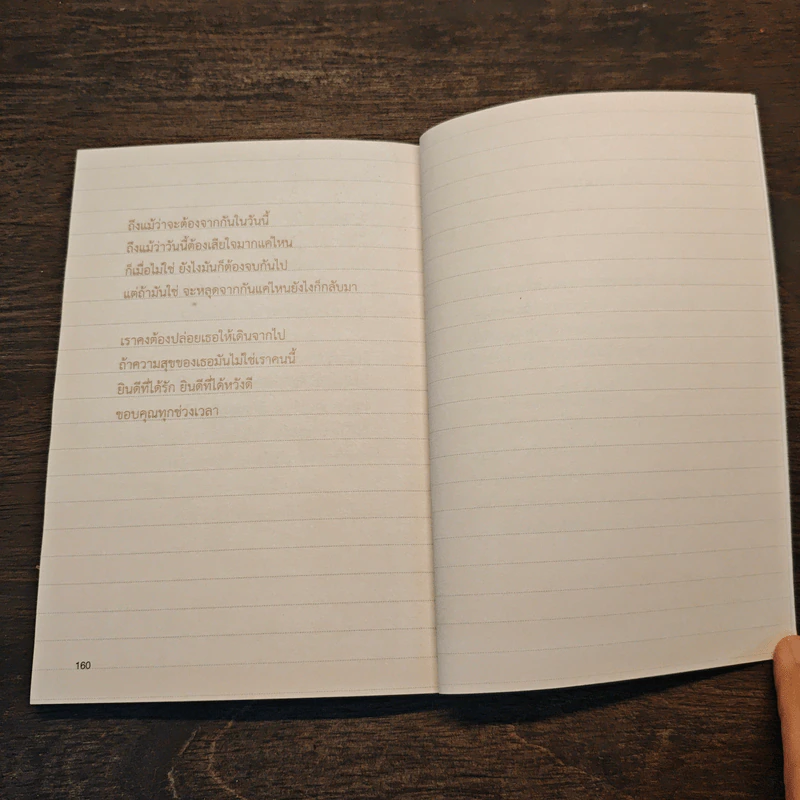 ถึงแม้ว่าจะต้องจากกันในวันนี้
ถึงแม้ว่าวันนี้ต้องเสียใจมากแค่ไหน
ก็เมื่อไม่ใช่ ยังไงมันก็ต้องจบกันไป
แต่ถ้ามันใช่ จะหลุดจากกันแค่ไหนยังไงก็กลับมา
เราคงต้องปล่อยเธอให้เดินจากไป
ถ้าความสุขของเธอมันไม่ใช่เราคนนี้
ยินดีที่ได้รัก ยินดีที่ได้หวังดี
ขอบคุณทุกช่วงเวลา
160